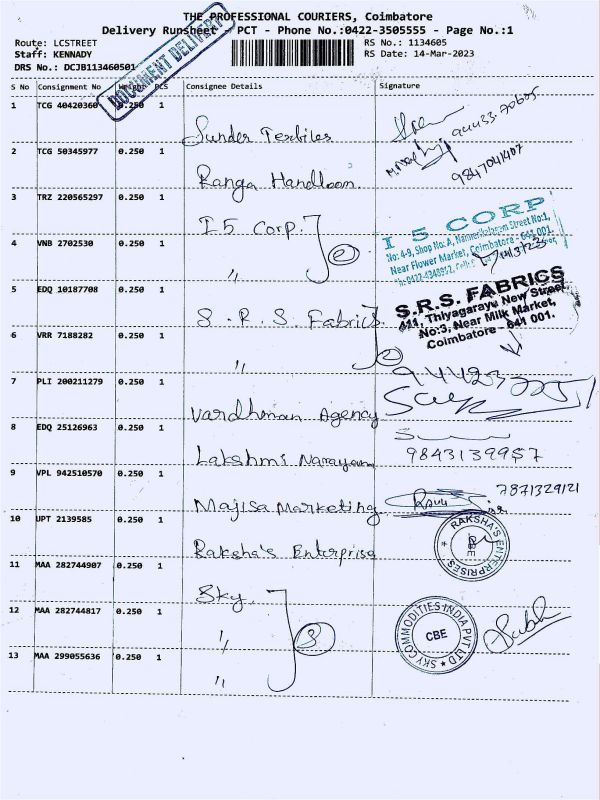 THE PROFESSIONAL COURIERS, Coimbatore
Delivery Runsheet - PCT - Phone No.:0422-3505555 - Page No.:1
Route: LCSTREET
Staff: KENNADY
DRS No.: DCJB113460501
RS No.: 1134605
RS Date: 14-Mar-2023
DOCUMENT DELIVERY
S No Consignment No Weight PCS Consignee Details Signature
1 TCG 40420360 0.250 1 Sunder Textiles
2 TCG 50345977 0.250 1 Ranga Handloom 9847041407
3 TRZ 220565297 0.250 1 I5 Corp. 2
4 VNB 2702530 0.250 1 "
I 5 CORP
No: 4-9, Shop No: A, Street No:1,
Near Flower Market, Coimbatore - 641 001.
5 EDQ 10187708 0.250 1 S.R.S Fabrics 2
6 VRR 7188282 0.250 1 "
S.R.S. FABRICS
411, Thiyagarayu New Street,
No:3, Near Milk Market,
Coimbatore - 641 001.
7 PLI 200211279 0.250 1 Vardhman Agency
8 EDQ 25126963 0.250 1 Lakshmi Narayan 9843139957
9 VPL 942510570 0.250 1 Majisa Marketing 7871329121
10 UPT 2139585 0.250 1 Raksha's Enterprise
RAKSHA'S ENTERPRISES
CBE
11 MAA 282744907 0.250 1 Sky 3
12 MAA 282744817 0.250 1 "
13 MAA 299055636 0.250 1 "
SKY COMMODITIES INDIA PVT LTD
CBE